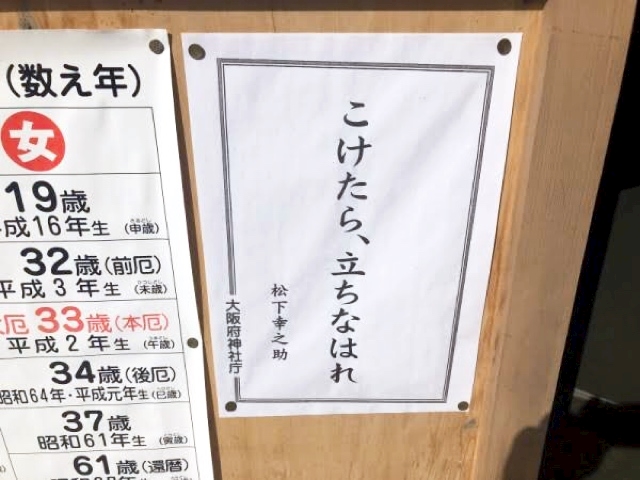 (数え年)
女
19歳
成16年生 (申歳)
32歳(前厄)
平成3年生 (未歳)
厄 33歳(本厄)
平成2年生 (午歳)
34歳(後厄)
昭和64年・平成元年生(巳歳)
37歳
昭和61年生 (寅歳)
61歳(還暦)
こけたら、立ちなはれ
松下幸之助
大阪府神社庁